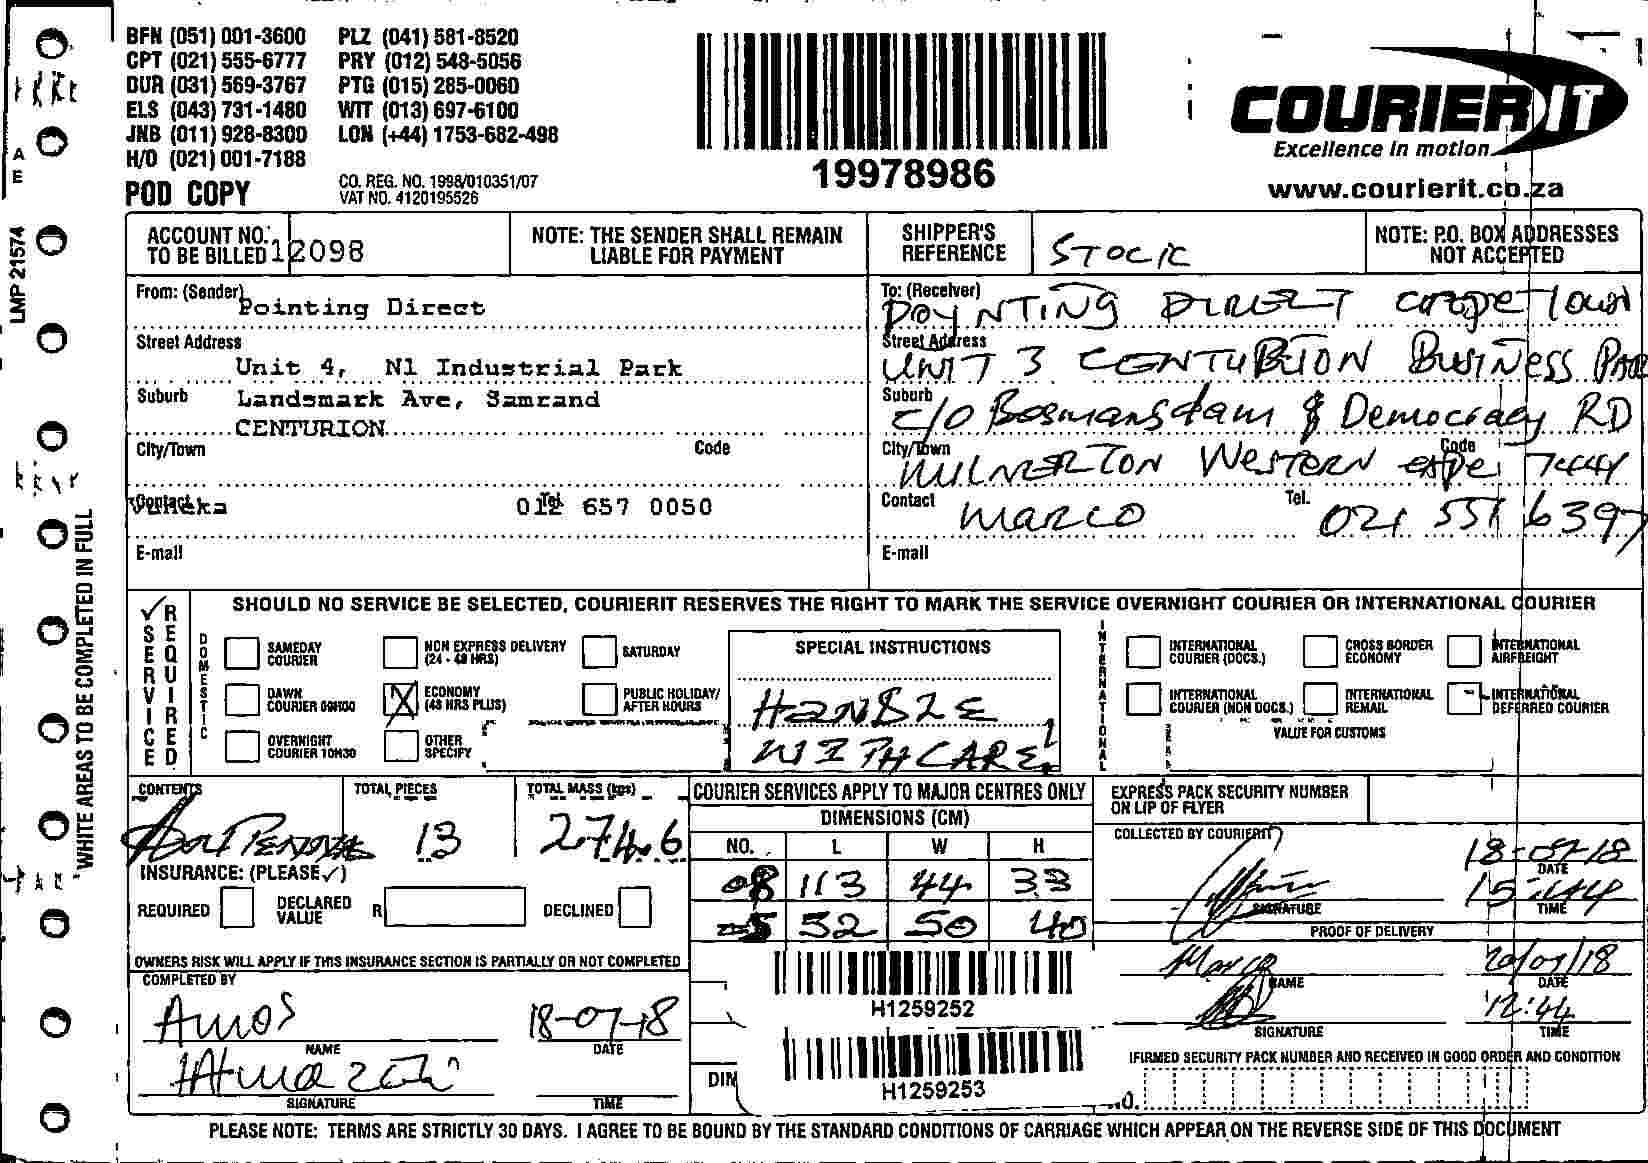 BFN (051) 001-3600 PLZ (041) 581-8520
CPT (021) 555-6777 PRY (012) 548-5056
DUR (031) 569-3767 PTG (015) 285-0060
ELS (043) 731-1480 WIT (013) 697-6100
JNB (011) 928-8300 LON (+44) 1753-682-498
H/O (021) 001-7188
POD COPY
CO. REG. NO. 1998/010351/07
VAT NO. 4120195526
19978986
COURIER IT
Excellence in motion
www.courierit.co.za
LMP 21574
WHITE AREAS TO BE COMPLETED IN FULL
ACCOUNT NO. TO BE BILLED 12098
NOTE: THE SENDER SHALL REMAIN LIABLE FOR PAYMENT
SHIPPER'S REFERENCE STOCK
NOTE: P.O. BOX ADDRESSES NOT ACCEPTED
From: (Sender) Pointing Direct
Street Address
Unit 4, N1 Industrial Park
Suburb Landsmark Ave, Samrand
CENTURION
City/Town Code
Contact Tel. 012 657 0050
E-mail
To: (Receiver)
POYNTING DIRECT Cape Town
Street Address
UNIT 3 CENTURION BUSINESS
Suburb
c/o Bosmansdam & Democracy RD
City/Town Code
MILNERTON WESTERN Cape 7441
Contact MARCO Tel. 021 551 6397
E-mail
SERVICE REQUIRED
SHOULD NO SERVICE BE SELECTED, COURIERIT RESERVES THE RIGHT TO MARK THE SERVICE OVERNIGHT COURIER OR INTERNATIONAL COURIER
DOMESTIC
SAMEDAY COURIER
NON EXPRESS DELIVERY (24 - 48 HRS)
SATURDAY
DAWN COURIER 09H00
ECONOMY (48 HRS PLUS)
PUBLIC HOLIDAY/ AFTER HOURS
OVERNIGHT COURIER 10H30
OTHER SPECIFY
SPECIAL INSTRUCTIONS
HANDLE
WITH CARE!
INTERNATIONAL
INTERNATIONAL COURIER (DOCS.)
CROSS BORDER ECONOMY
INTERNATIONAL AIRFREIGHT
INTERNATIONAL COURIER (NON DOCS.)
INTERNATIONAL REMAIL
INTERNATIONAL DEFERRED COURIER
VALUE FOR CUSTOMS
CONTENTS
TOTAL PIECES 13
TOTAL MASS (kgs) 274.6
INSURANCE: (PLEASE ✓)
REQUIRED
DECLARED VALUE R
DECLINED
OWNERS RISK WILL APPLY IF THIS INSURANCE SECTION IS PARTIALLY OR NOT COMPLETED
COMPLETED BY
Amos 18-07-18
NAME DATE
SIGNATURE TIME
COURIER SERVICES APPLY TO MAJOR CENTRES ONLY
DIMENSIONS (CM)
NO. L W H
08 113 44 33
5 52 50 40
H1259252
H1259253
DIM
EXPRESS PACK SECURITY NUMBER ON LIP OF FLYER
COLLECTED BY COURIERIT
18-07-18
DATE
15:44
SIGNATURE TIME
PROOF OF DELIVERY
Marco 20/07/18
NAME DATE
12:44
SIGNATURE TIME
IFIRMED SECURITY PACK NUMBER AND RECEIVED IN GOOD ORDER AND CONDITION
PLEASE NOTE: TERMS ARE STRICTLY 30 DAYS. I AGREE TO BE BOUND BY THE STANDARD CONDITIONS OF CARRIAGE WHICH APPEAR ON THE REVERSE SIDE OF THIS DOCUMENT